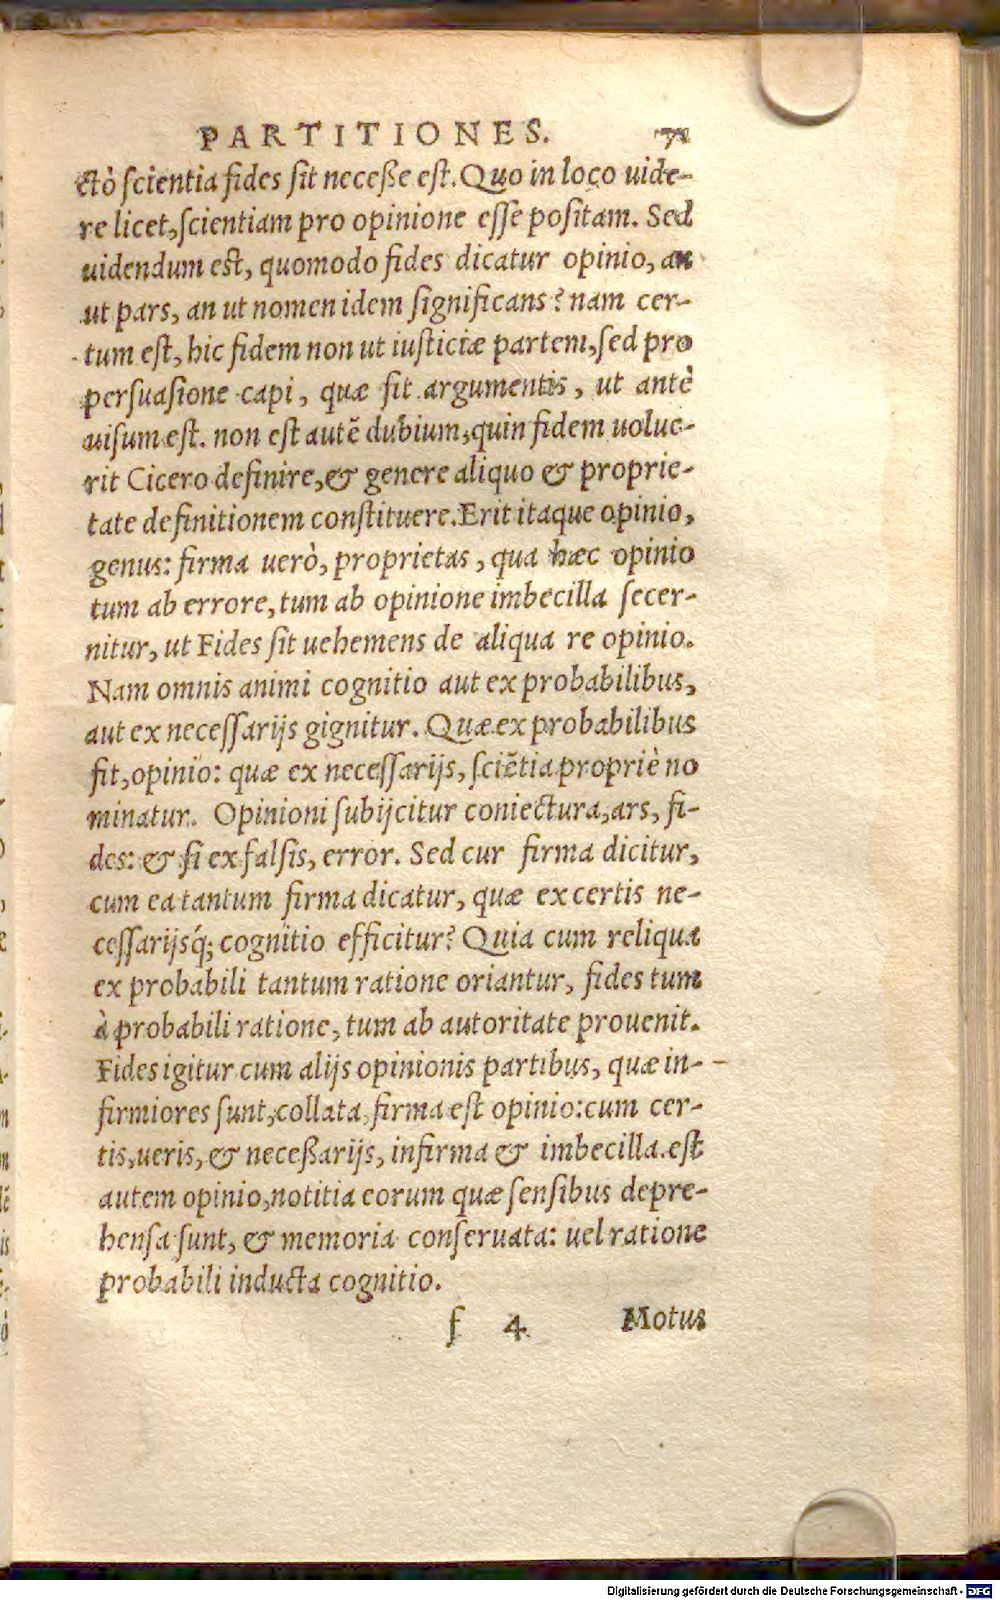 PARTITIONES. 71
ctò scientia fides sit neceße est. Quo in loco uide-
re licet, scientiam pro opinione esse positam. Sed
uidendum est, quomodo fides dicatur opinio, an
ut pars, an ut nomen idem significans? nam cer-
tum est, hic fidem non ut iusticiæ partem, sed pro
persuasione capi, quæ fit argumentis, ut antè
uisum est. non est autẽ dubium, quin fidem uolue-
rit Cicero definire, & genere aliquo & proprie-
tate definitionem constituere. Erit itaque opinio,
genus: firma uerò, proprietas, qua hæc opinio
tum ab errore, tum ab opinione imbecilla secer-
nitur, ut Fides sit uehemens de aliqua re opinio.
Nam omnis animi cognitio aut ex probabilibus,
aut ex necessarijs gignitur. Quæ ex probabilibus
fit, opinio: quæ ex necessarijs, sciẽtia propriè no
minatur. Opinioni subijcitur coniectura, ars, fi-
des: & si ex falsis, error. Sed cur firma dicitur,
cum ea tantum firma dicatur, quæ ex certis ne-
cessarijsq́; cognitio efficitur? Quia cum reliquæ
ex probabili tantum ratione oriantur, fides tum
à probabili ratione, tum ab autoritate prouenit.
Fides igitur cum alijs opinionis partibus, quæ in-
firmiores sunt, collata, firma est opinio: cum cer-
tis, ueris, & neceßarijs, infirma & imbecilla. est
autem opinio, notitia eorum quæ sensibus depre-
hensa sunt, & memoria conseruata: uel ratione
probabili inducta cognitio.
f 4 Motus
Digitalisierung gefördert durch die Deutsche Forschungsgemeinschaft - DFG